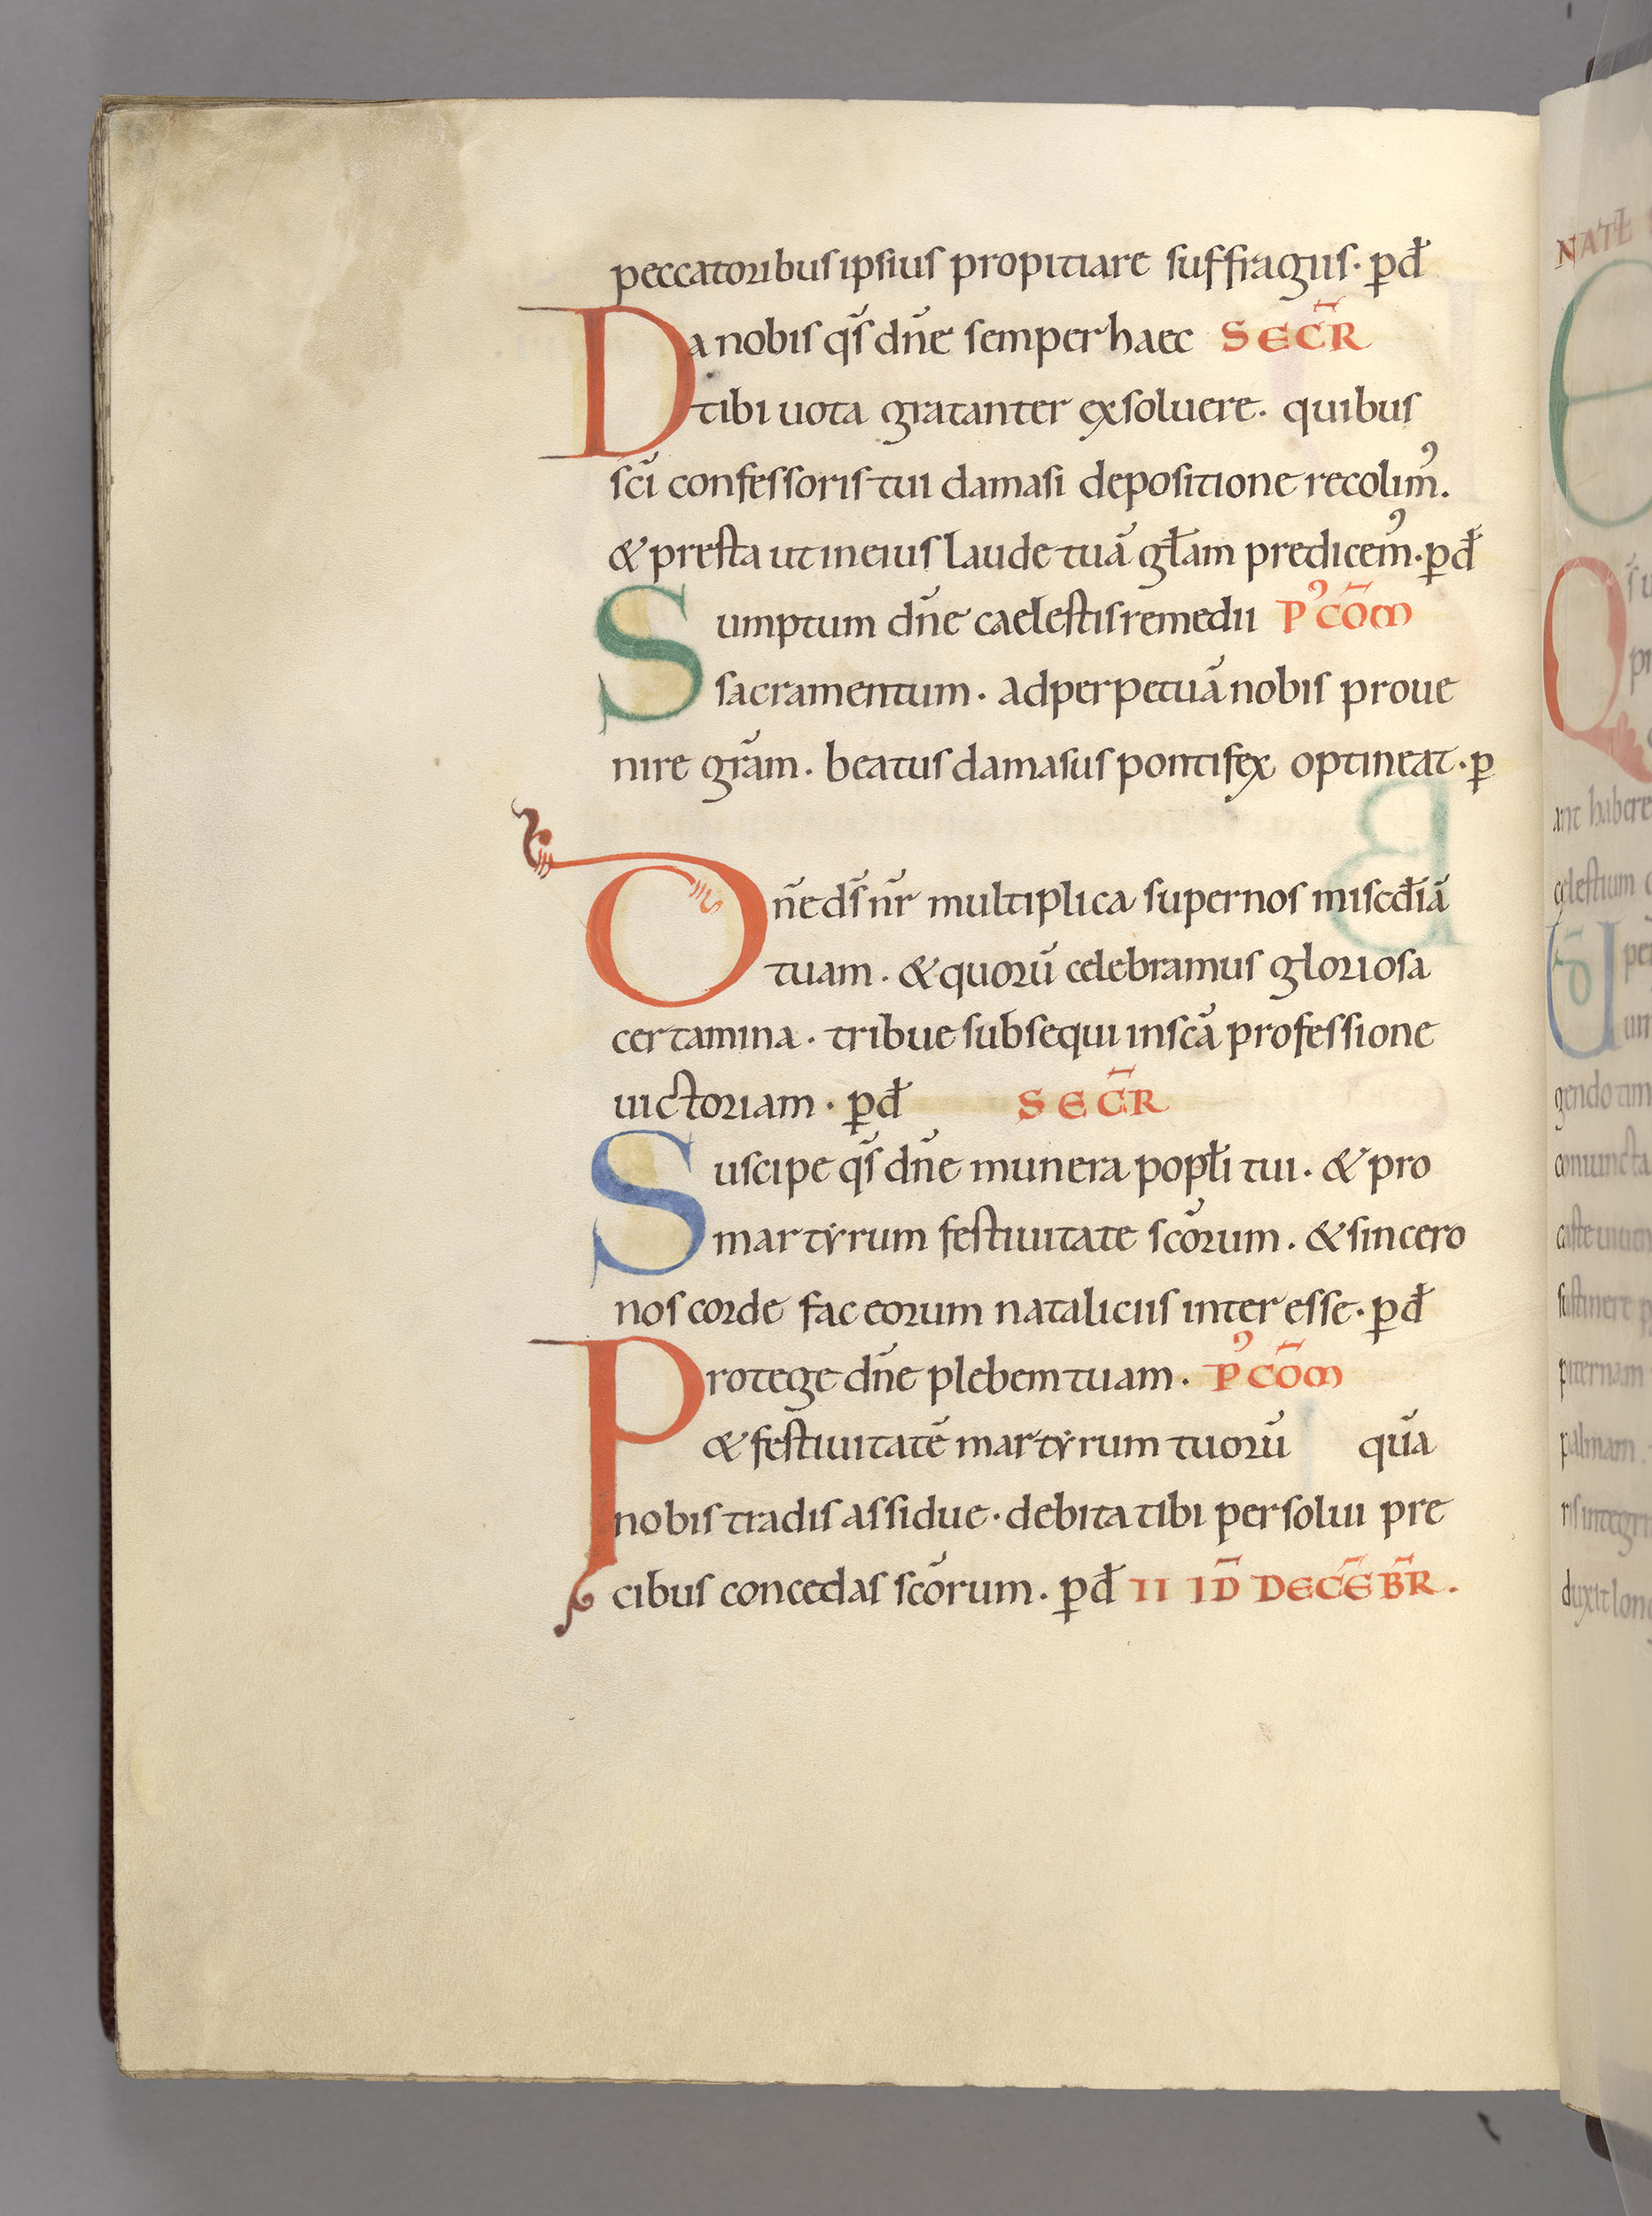 peccatoribus ipsius propitiare suffragiis· p̄đ
Da nobis qs̄ dñe semper haec SEC̄R
tibi uota gratanter exsoluere. quibus
sc̄i confessoris tui damasi depositione recolim᾽.
& presta ut in eius laude tuā gl̄am predicem᾽. p̄đ
Sumptum dñe caelestis remedii P᾽CŌM
sacramentum. ad perpetuā nobis proue
nire grām. beatus damasus pontifex optineat· p̄
Dn̄e ds̄ nr̄ multiplica super nos miscđiā
tuam. & quorū celebramus gloriosa
certamina. tribue subsequi in sc̄a professione
uictoriam· p̄đ SEC̄R
Suscipe qs̄ dñe munera popłi tui. & pro
martyrum festiuitate sc̄orum. & sincero
nos corde fac eorum nataliciis interesse· p̄đ
Protege dñe plebem tuam. P᾽CŌM
& festiuitatē martyrum tuorū quā
nobis tradis assidue· debita tibi persolui pre
cibus concedas sc̄orum. p̄đ II ID̄ DEC̄EB̄R.
NATŁ
ant habere
celestium
gendo
coniuncta
caste uiuen
sustinere p
piternam
palmam.
ris integri
duxit long